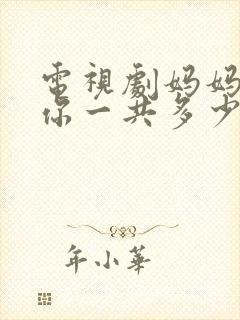 電視劇妈妈
你一共多少
年小華